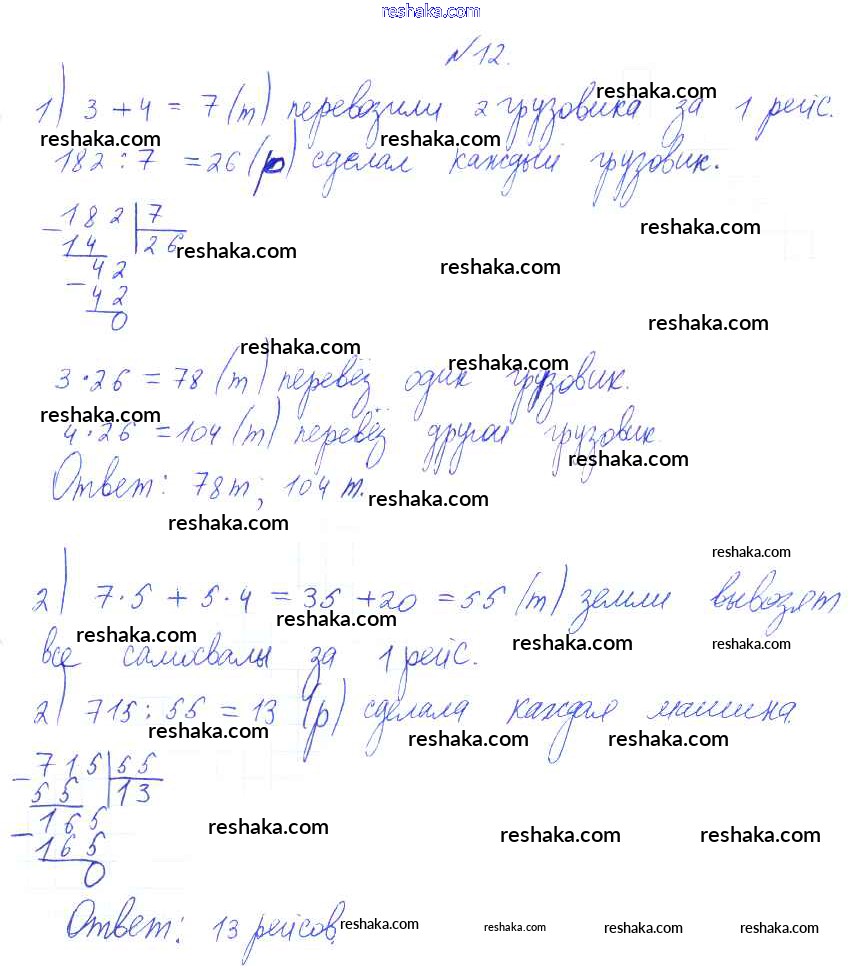 reshaka.com
№12.
reshaka.com
1) 3 + 4 = 7 (т) перевозили 2 грузовика за 1 рейс.
reshaka.com reshaka.com
182 : 7 = 26 (р) сделал каждый грузовик.
182 | 7
14 | 26
reshaka.com reshaka.com
42
reshaka.com
42
0
reshaka.com
reshaka.com
reshaka.com
3 · 26 = 78 (т) перевёз один грузовик.
reshaka.com
4 · 26 = 104 (т) перевёз другой грузовик.
reshaka.com
Ответ: 78 т; 104 т.
reshaka.com
reshaka.com
reshaka.com
2) 7 · 5 + 5 · 4 = 35 + 20 = 55 (т) земли вывозят
reshaka.com reshaka.com reshaka.com reshaka.com
все самосвалы за 1 рейс.
2) 715 : 55 = 13 (р) сделала каждая машина.
reshaka.com reshaka.com reshaka.com
715 | 55
55 | 13
165
reshaka.com reshaka.com reshaka.com
165
0
Ответ: 13 рейсов.
reshaka.com reshaka.com reshaka.com reshaka.com